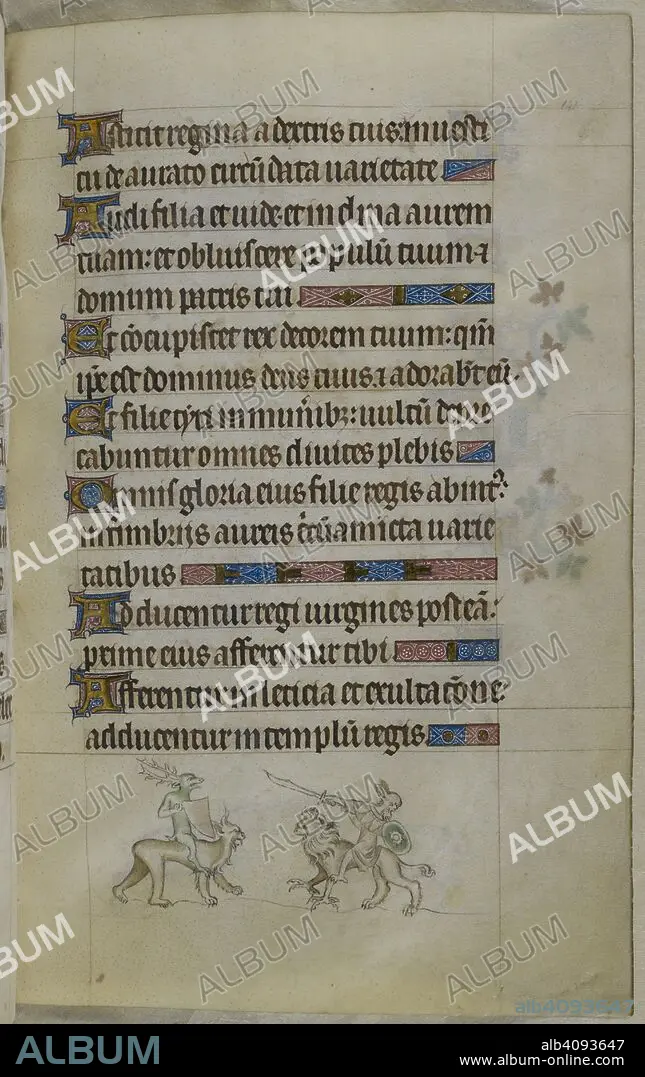 Astitit regina a dextris tuis: in uesti
tu de aurato circũ data uarietate
Audi filia et uide et inclina aurem
tuam: et obliuiscere populũ tuum ⁊
domum patris tui
Et cõcupiscet rex decorem tuum: qm̃
ip̃e est dominus deus tuus ⁊ adorab̃t eũ.
Et filie tyri in munib;: uultũ depre
cabuntur omnes diuites plebis
Omnis gloria eius filie regis ab int᷒:
in fimbrijs aureis c̃cũamicta uarie
tatibus
Adducentur regi uirgines post eã:
prime eius afferentur tibi
Afferentur in leticia et exultacõne:
adducentur in templũ regis
ALBUM
alb4093647
ALBUM
alb4093647
www.album-online.com